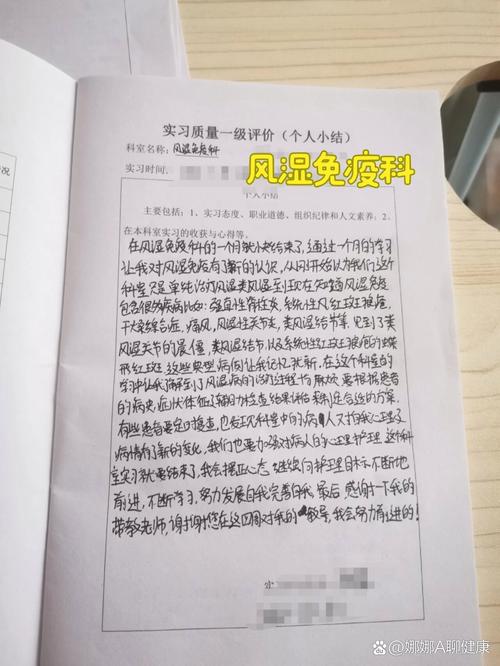 况
实习质量一级评价（个人小结）
科室名称：风湿免疫科
实习时间：
风湿免疫科
个人小结
主要包括：1、实习态度、职业道德、组织纪律和人文素养；2、
在本科室实习的收获与心得等。
在风湿免疫科的一个月就快结束了，通过一个月的学习
让我对风湿免疫有了新的认识，从刚开始以为我们这个
科室只是单纯治疗风湿类风湿到现在知道风湿免疫
包含很多疾病比如：强直性脊柱炎，系统性红斑狼疮，
干燥综合症，痛风，风湿性关节炎，类风湿结节等，见到了类
风湿关节的晨僵，类风湿结节，以及系统性红斑狼疮的蝶
形红斑，这些典型病例让我记忆犹新，在这个科室的
学习中让我了解到了风湿病的治疗过程与麻烦，要根据患者
的病史，症状体征，辅助检查结果评估来制定合适的方案，
有些患者要定时换查，也发现科室中的病人又拘我心理及
病情有了新的变化，我们也要加强对病人的心理护理，这个科
室实习就要结束了，我会摆正心态，继续向护理目标不断地
前进，不断学习，努力发展自我完善自我，最后，感谢一下我的
带教老师，谢谢您在这四周对我的教导，我会努力前进的！
头条 @娜娜A聊健康